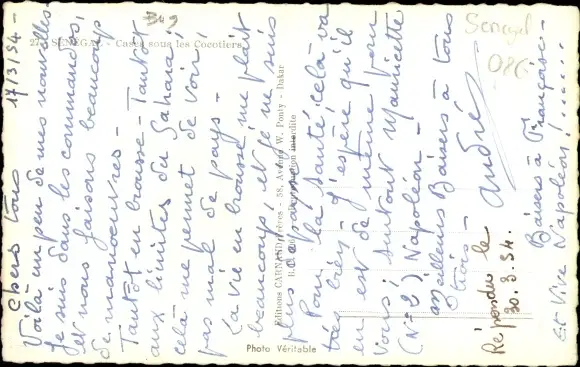 17/3/54 -
Chers tous
Voilà un peu de mes nouvelles.
Je suis dans les commandos,
et nous faisons beaucoup
de manoeuvres -
Tantôt en brousse - Tantôt
aux limites du Sahara;
celà me permet de voir
pas mal de pays -
La vie en brousse me plait
beaucoup, et je me suis
plus paysé
Pour la santé, celà va
très bien. J'espère qu'il
en est de même pour
vous; surtout Mauricette
(N° 2) Napoléon -
Meilleurs Baisers à tous
trois -
André
Baisers à Française -
Et Vive Napoléon!......
Répondu le
30.3.54.
Senegal
086
SENEGAL - Cases sous les Cocotiers
Editions CARN Frères - 58, Avenue W. Ponty - Dakar
Reproduction interdite
Photo Véritable